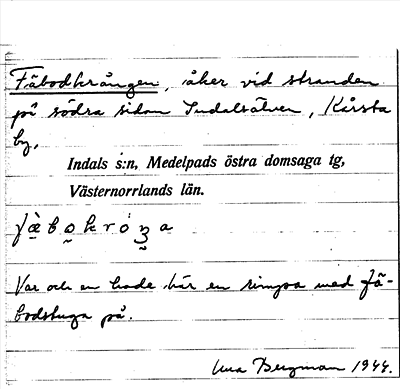 Fäbodkrången, åker vid stranden
på södra sidan Indalsälven, Kårsta
by.
Indals s:n, Medelpads östra domsaga tg,
Västernorrlands län.
Var och en hade här en rimpa med fä-
bodstuga på.
Bergman 1944.